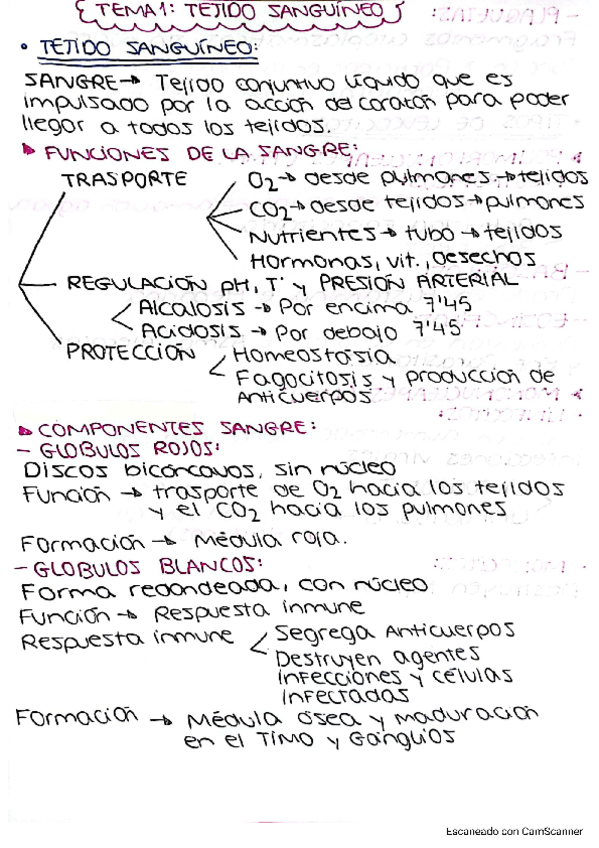 TEMA 1: TEJIDO SANGUÍNEO
• TEJIDO SANGUÍNEO:
SANGRE → Tejido conjuntivo líquido que es
impulsado por la acción del corazón para poder
llegar a todos los tejidos.
FUNCIONES DE LA SANGRE:
TRASPORTE
O2 → desde pulmones → tejidos
CO2 → desde tejidos → pulmones
Nutrientes → tubo → tejidos
Hormonas, vit., desechos
REGULACIÓN pH, Tª y PRESIÓN ARTERIAL
Alcalosis → Por encima 7'45
Acidosis → Por debajo 7'45
PROTECCIÓN
Homeostasia
Fagocitosis y producción de
Anticuerpos
COMPONENTES SANGRE:
- GLOBULOS ROJOS:
Discos bicóncavos, sin núcleo
Función → trasporte de O2 hacia los tejidos
y el CO2 hacia los pulmones
Formación → Médula roja.
- GLOBULOS BLANCOS:
Forma redondeada, con núcleo
Función → Respuesta inmune
Respuesta inmune
Segrega Anticuerpos
Destruyen agentes
infecciones y células
infectadas
Formación → Médula ósea y maduración
en el TIMO y Ganglios
Escaneado con CamScanner